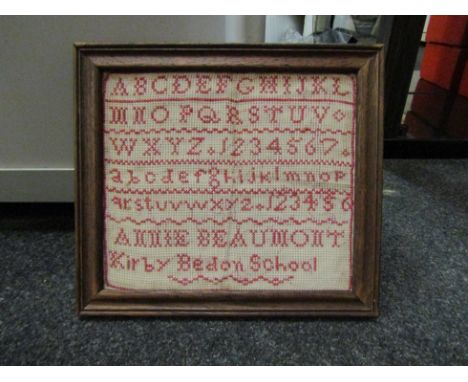 ABCDEFGHIJKL
MNOPQRSTUV
WXYZ.1234567
abcdefghijklmnop
qrstuvwxyz.123456
ANNIE BEAUMONT
Kirby Bedon School